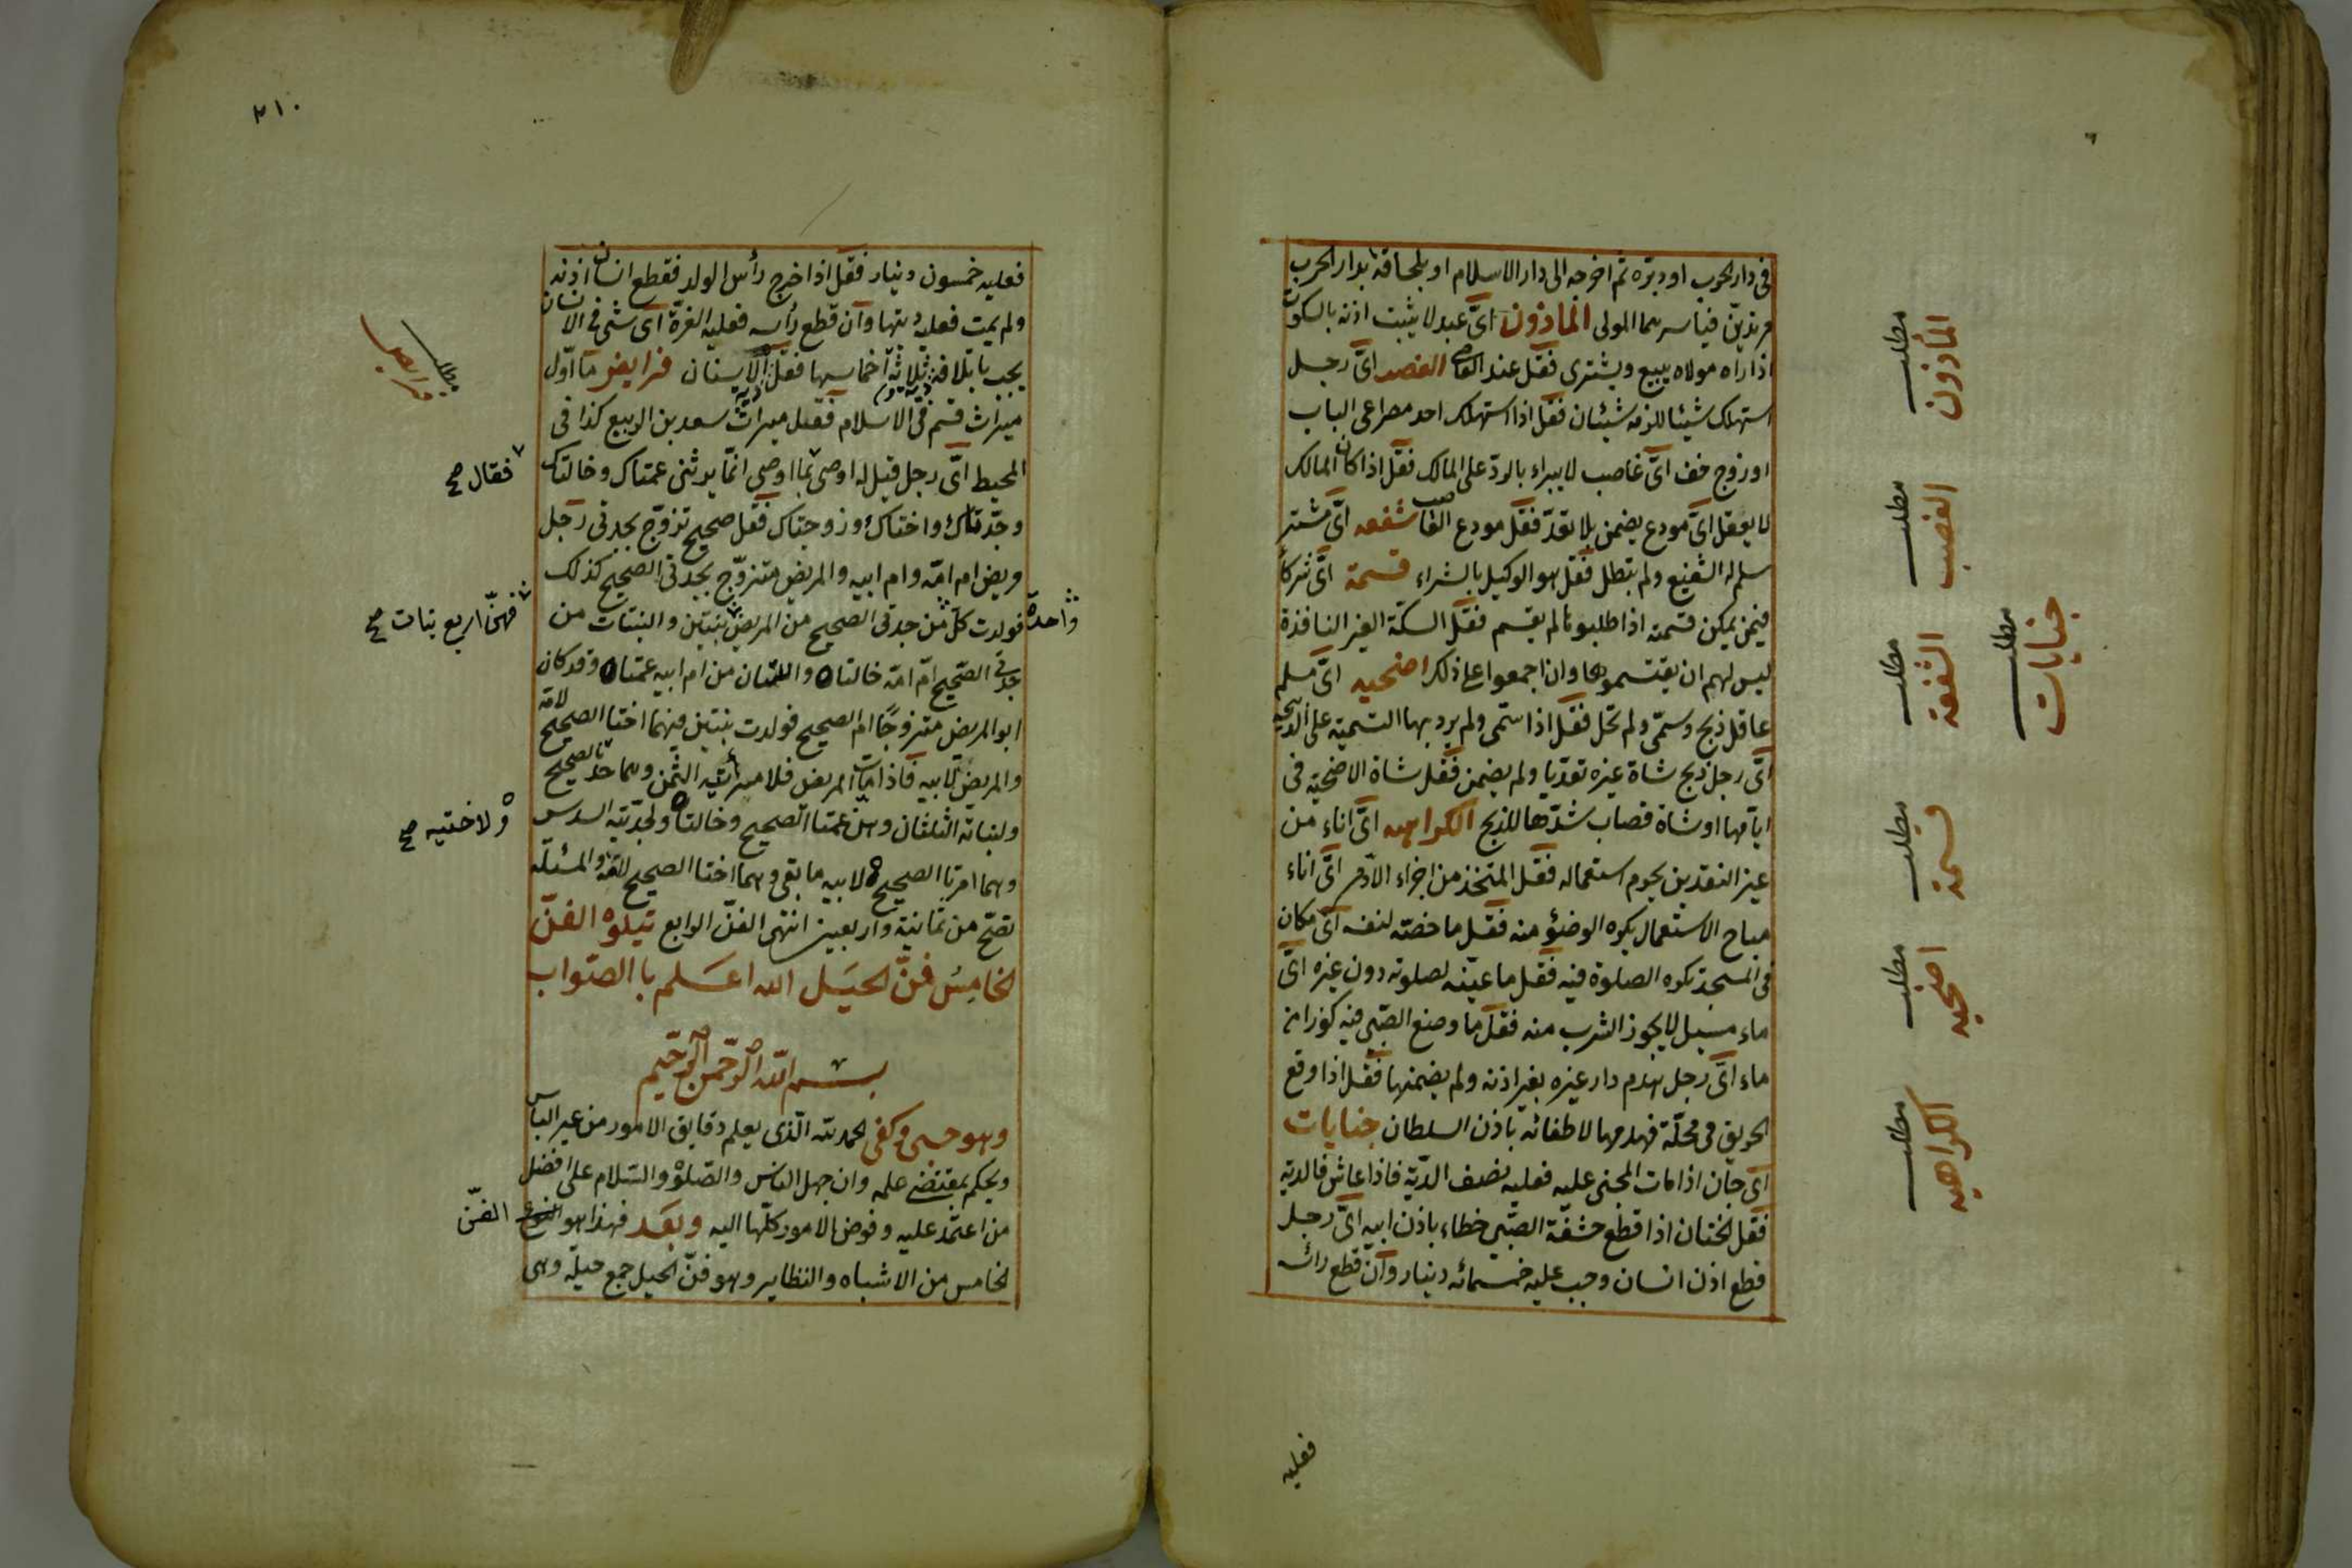 فى دار الحرب او دبره ثم اخرجه الى دار الاسلام او بلحاقه بدار الحرب
مرتدين فياسرهما المولى المأذون اىّ عبد لا يثبت اذنه بالسكوت
اذا راه مولاه يبيع ويشترى فقل عبد القاضى الغصب اىّ رجل
استهلك شيئا لزمه شيئان فقل اذا استهلك احد مصراعى الباب
او زوج خف اىّ غاصب لا يبراء بالردّ على المالك فقل اذا كان المالك
لا يعقل اىّ مودع يضمن بلا تعدّ فقل مودع الغاصب شفعه اىّ مشتر
سلم له الشفيع ولم تبطل فقل هو الوكيل بالشراء قسمة اىّ شركا
فيمن يمكن قسمته اذا طلبوها لم يقسم فقل السكّة الغير النافذة
ليس لهم ان يقتسموها وان اجمعوا على ذلك اضحيه اىّ مسلم
عاقل ذبح وسمّى ولم تحل فقل اذا سمّى ولم يرد بها التسمية على الذبيحه
اىّ رجل ذبح شاة غيره تعدّيا ولم يضمن فقل شاة الاضحيّة فى
ايامها او شاة قصاب شدّها للذبح الكراهيه اىّ اناء من
غير النقدين يحرم استعماله فقل المتخذ من اجزاء الآدمى اىّ اناء
مباح الاستعمال يكره الوضؤ منه فقل ما خصّه لنفسه اىّ مكان
فى المسجد تكره الصلوة فيه فقل ما عيّنه لصلوته دون غيره اىّ
ماء مسبل لا يجوز الشرب منه فقل ما وضع الصّبى فيه كوزا من
ماء اىّ رجل هدم دار غيره بغير اذنه ولم يضمنها فقل اذا وقع
الحريق فى محلّة فهدمها لاطفائه باذن السلطان جنايات
اىّ جان اذا مات المجنى عليه فعليه نصف الدّية فاذا عاش فالدية
فقل الختان اذا قطع حشفة الصّبى خطاء باذن ابيه اىّ رجل
قطع اذن انسان وجب عليه خمسمائه دينار وان قطع رأسه
فعليه
مطلب المأذون
مطلب الغصب
مطلب الشفعة
مطلب جنايات
مطلب قسمة
مطلب اضحيه
مطلب الكراهيه
٢١٠
فعليه خمسون دينار فقل اذا خرج رأس الولد فقطع انسان اذنه
ولم يمت فعليه ديتها وان قطع رأسه فعليه الغرّة اىّ شئ فى الانسان
يجب باتلافه دية وثلاثة اخماسها فقل الاسنان فرايض ما اوّل
ميراث قسم فى الاسلام فقل ميراث سعد بن الربيع كذا فى
المحيط اىّ رجل قيل له اوصى بما اوصى انمّا يرثنى عمتاك وخالتاك
وجدّتاك واختاك وزوجتاك فقل صحيح تزوّج بجدتى رجل
مريض ام امّه وام ابيه والمريض متزوّج بجدتى الصحيح كذلك
فولدت كلّ من جدتى الصحيح من المريض بنتين والبنتان من
جدتى الصّحيح امّ امّه خالتاه واللتان من ام ابيه عمتاه وقد كان
ابو المريض متزوجّا ام الصحيح فولدت بنتين فهما اختا الصحيح لامّه
والمريض لابيه فاذا مات المريض فلامرأتيه الثمن وهما جدتا الصحيح
ولبناته الثلثان وهن عمتا الصحيح وخالتاه ولجدّتيه السدس
وهما امرأتا الصحيح لابيه ما بقى وهما اختا الصحيح لامّه والمسئلة
تصّح من ثمانية واربعين انتهى الفنّ الرابع يتلوه الفنّ
الخامس فنّ الحيَل الله اعلم با الصّواب
بسم الله الرحمن الرحيم
وهو حسبى وكفى الحمد لله الّذى يعلم دقايق الامور من غير التباس
ويحكم بمقتضى علمه وان جهل الناس والصّلوة والسّلام على افضل
من اعتمد عليه وفوض الامور كلّها اليه وبعَد فهذا هو النوع الفنّ
الخامس من الاشباه والنظاير وهو فنّ الحيل جمع حيلة وهى
مطلب فرايض
فقال صح
واحدة
فهنّ اربع بنات صح
ولاختيه صح